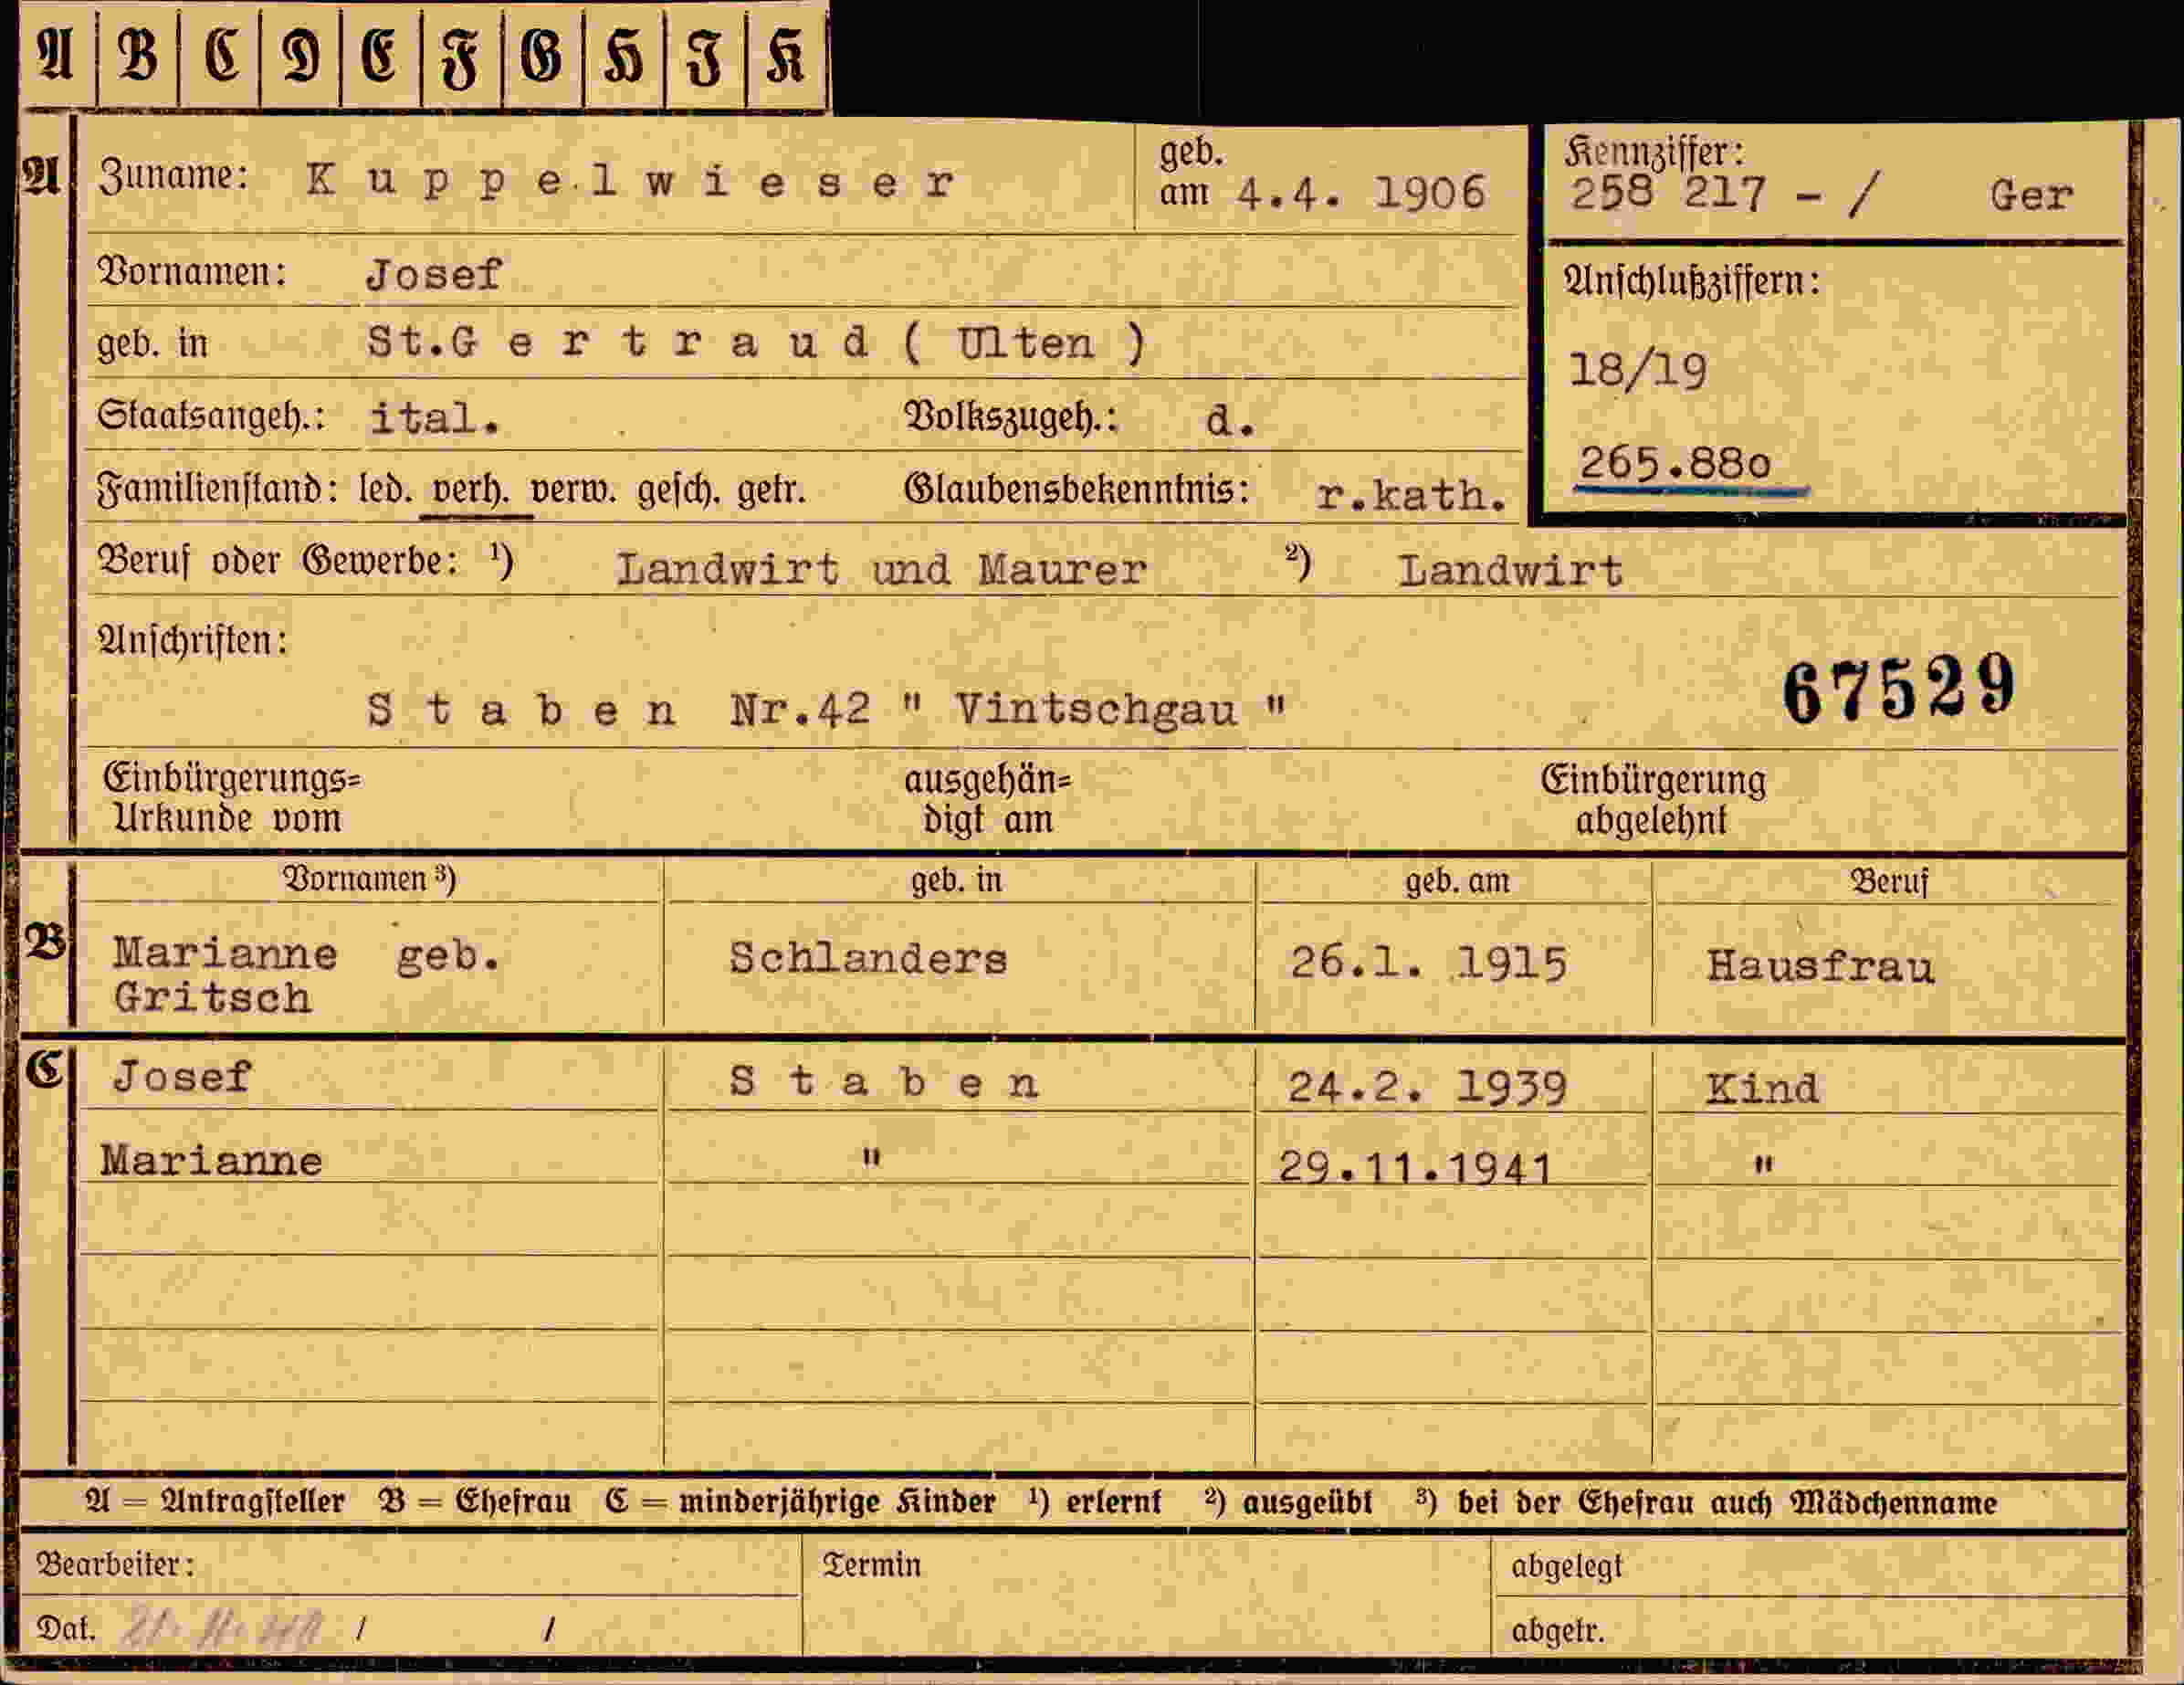 A B C D E F G H I K
A Zuname: K u p p e l w i e s e r geb. am 4.4. 1906
Kennziffer:
258 217 - / Ger
Vornamen: Josef
Anschlußziffern:
geb. in St.G e r t r a u d ( Ulten )
18/19
Staatsangeh.: ital. Volkszugeh.: d.
265.88o
Familienstand: led. verh. verw. gesch. getr. Glaubensbekenntnis: r.kath.
Beruf oder Gewerbe: ¹) Landwirt und Maurer ²) Landwirt
Anschriften:
67529
S t a b e n Nr.42 " Vintschgau "
Einbürgerungs= ausgehän= Einbürgerung
Urkunde vom digt am abgelehnt
Vornamen ³) geb. in geb. am Beruf
B Marianne geb. Schlanders 26.1. 1915 Hausfrau
Gritsch
C Josef S t a b e n 24.2. 1939 Kind
Marianne " 29.11.1941 "
A = Antragsteller B = Ehefrau C = minderjährige Kinder ¹) erlernt ²) ausgeübt ³) bei der Ehefrau auch Mädchenname
Bearbeiter: Termin abgelegt
Dat. / / abgetr.